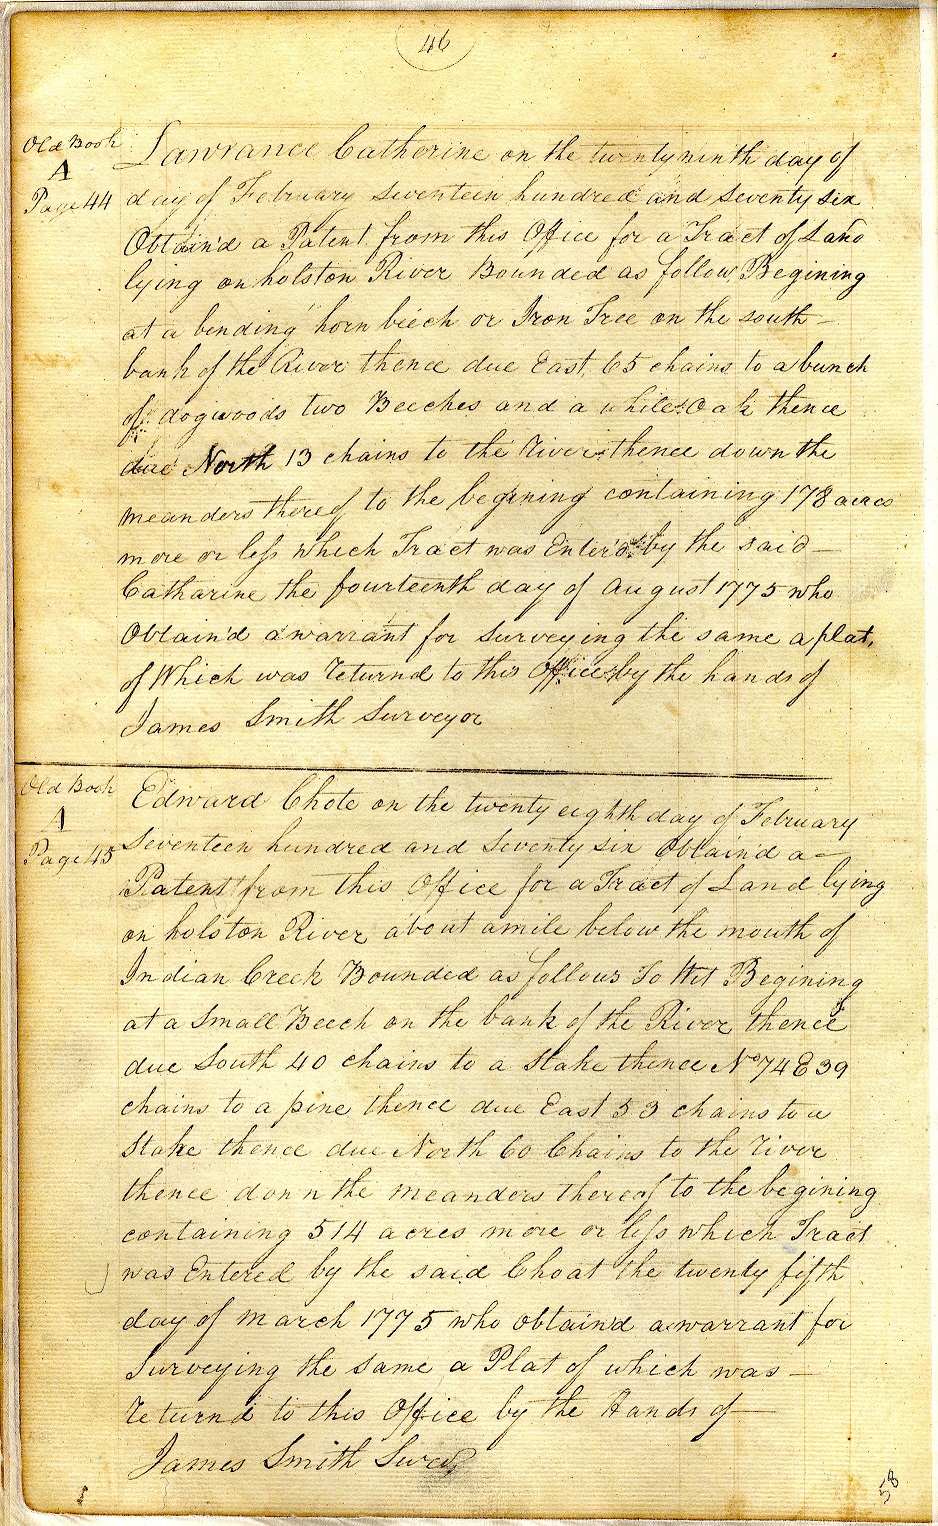 46
Old Book
A
Page 44
Lawrance Catherine on the twenty ninth day of
day of February Seventeen hundred and Seventy six
Obtain'd a Patent from this Office for a Tract of Land
lying on holston River Bounded as follow, Begining
at a bending horn beech or Iron Tree on the south
bank of the River thence due East 65 chains to a bunch
of dogwoods two Beeches and a white Oak thence
due North 13 chains to the River thence down the
meanders thereof to the begining containing 178 acres
more or less which Tract was Enter'd by the said
Catharine the fourteenth day of August 1775 who
Obtain'd a warrant for Surveying the same a plat,
of Which was returnd to this Office by the hands of
James Smith Surveyor
Old Book
A
Page 45
Edward Chote on the twenty eighth day of February
Seventeen hundred and Seventy six Obtain'd a
Patent from this Office for a Tract of Land lying
on holston River about a mile below the mouth of
Indian Creek Bounded as follows To Wit Begining
at a Small Beech on the bank of the River thence
due South 40 chains to a Stake thence No 74 E 39
chains to a pine thence due East 53 chains to a
Stake thence due North 60 Chains to the River
thence down the meanders thereof to the begining
containing 514 acres more or less which Tract
was Entered by the said Choat the twenty fifth
day of march 1775 who obtain'd a warrant for
Surveying the same a Plat of which was
returnd to this Office by the Hands of
James Smith
58